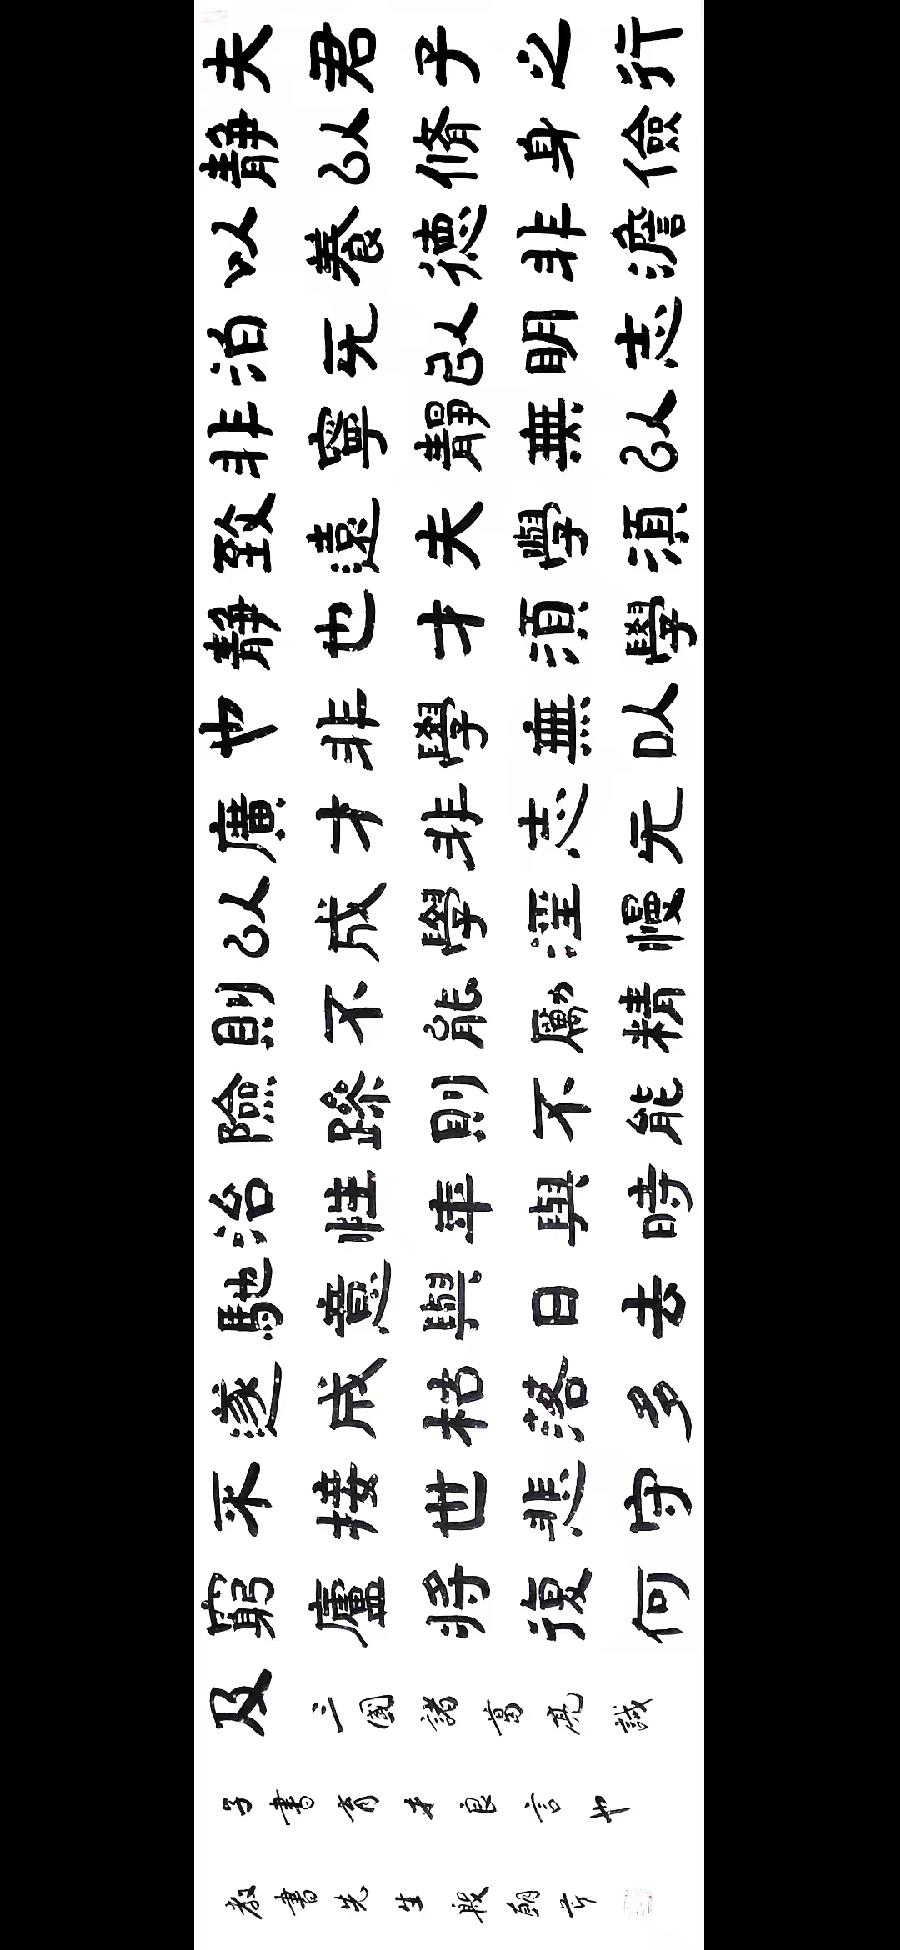 夫君子之行
靜以脩身儉
以養德非澹
泊无以明志
非寧靜無以
致遠夫學須
靜也才須學
也非學無以
廣才非志无
以成學淫慢
則不能勵精
險躁則不能
治性年與時
馳意與日去
遂成枯落多
不接世悲守
窮廬將復何
及三國諸葛亮誡
子書育才良言也
教書先生